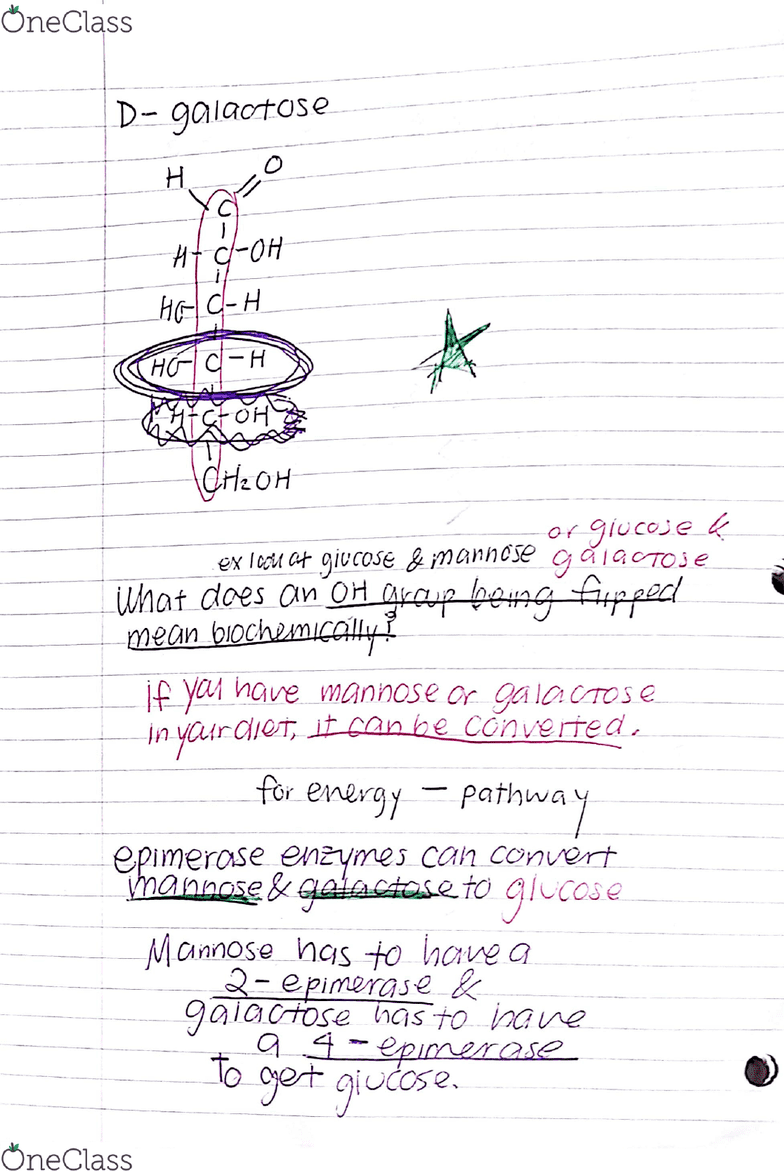 OneClass
D- galactose
H O
C
H-C-OH
HO-C-H
HO-C-H
H-C-OH
CH2OH
or glucose &
ex look at glucose & mannose galactose
What does an OH group being flipped
mean biochemically?
if you have mannose or galactose
in your diet, it can be converted.
for energy - pathway
epimerase enzymes can convert
mannose & galactose to glucose
Mannose has to have a
2-epimerase &
galactose has to have
a 4-epimerase
to get glucose.
OneClass